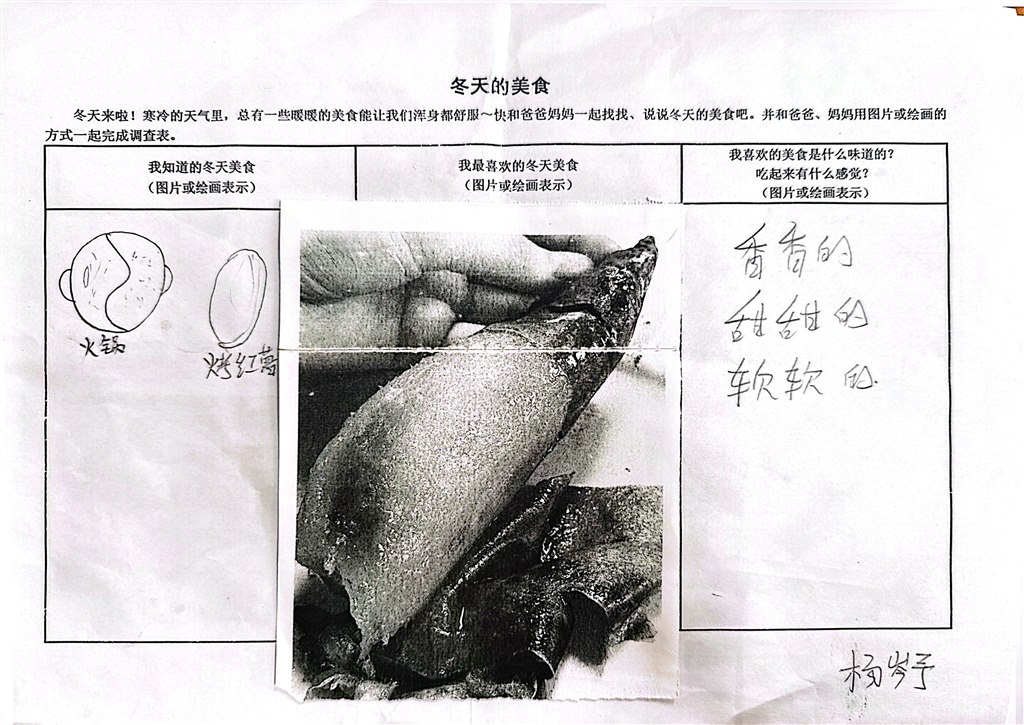 冬天的美食
冬天来啦！寒冷的天气里，总有一些暖暖的美食能让我们浑身都舒服～快和爸爸妈妈一起找找、说说冬天的美食吧。并和爸爸、妈妈用图片或绘画的
方式一起完成调查表。
我知道的冬天美食
（图片或绘画表示）
我最喜欢的冬天美食
（图片或绘画表示）
我喜欢的美食是什么味道的？
吃起来有什么感觉？
（图片或绘画表示）
火锅
烤红薯
香香的
甜甜的
软软的
杨岑予